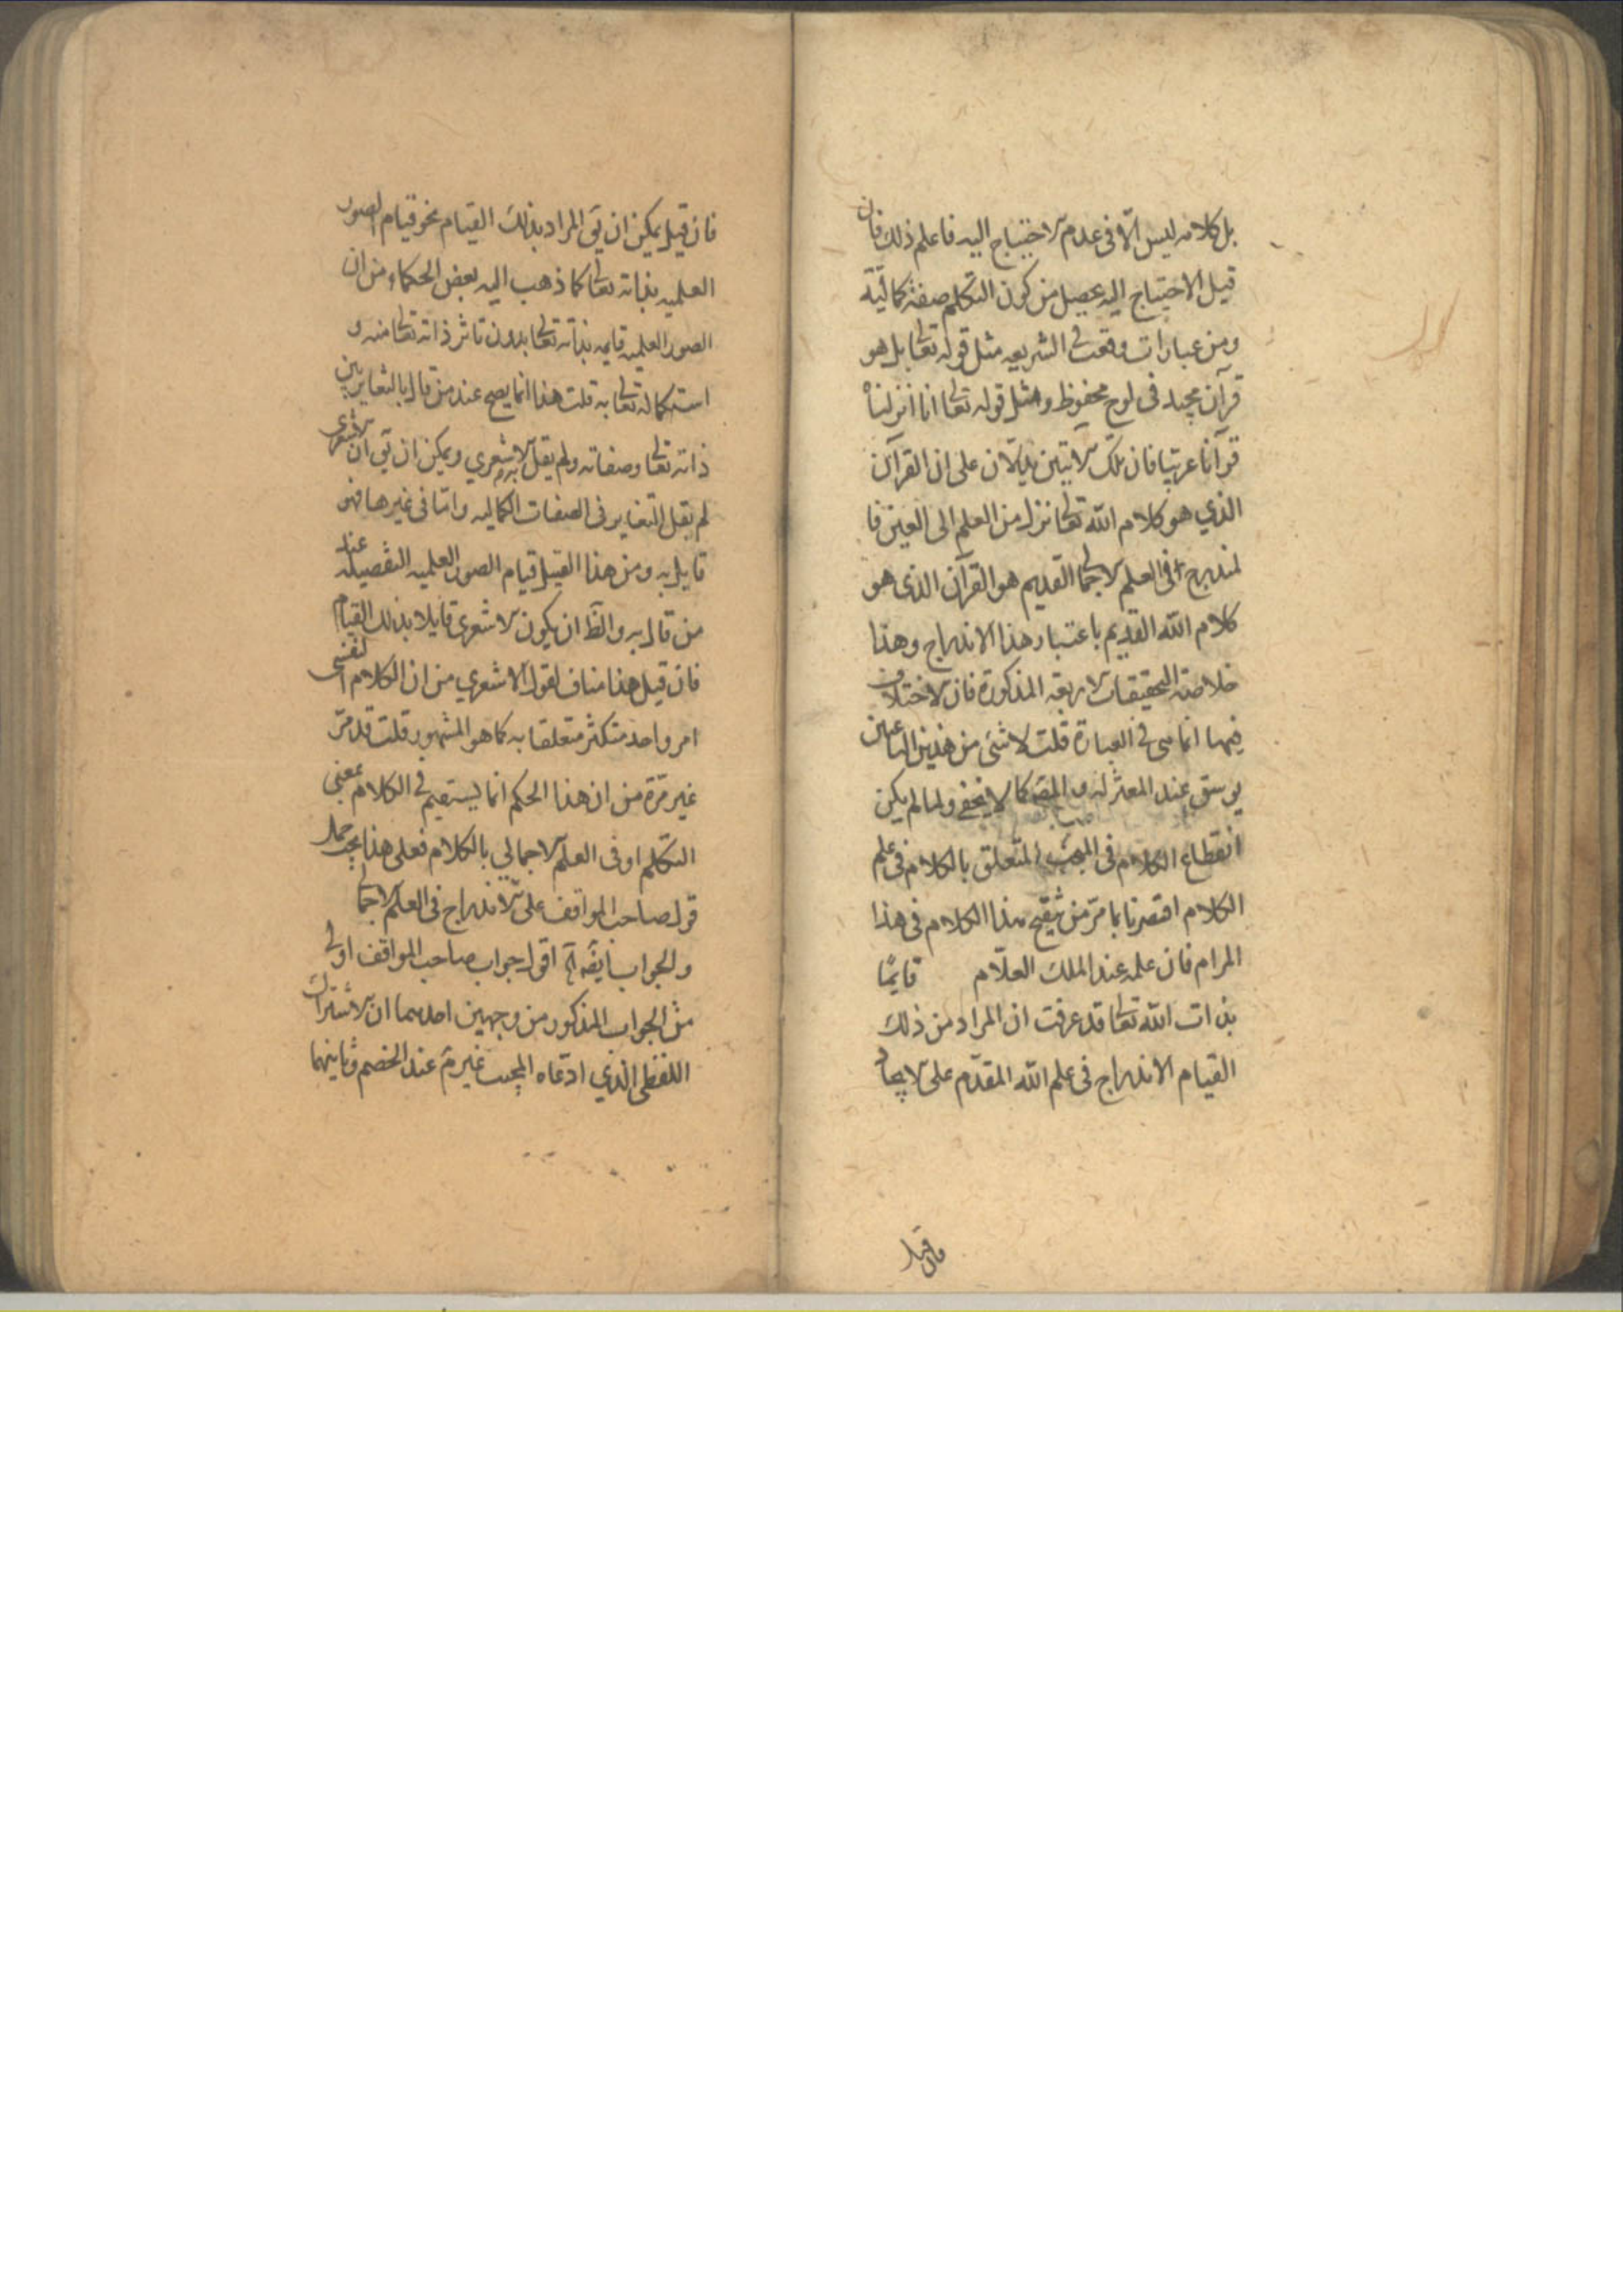 بل كلامه ليس الا فى عدم الاحتياج اليه فاعلم ذلك فان
قيل الاحتياج اليه يحصل من كون التكلم صفة كمالية
ومن عبارات وقعت فى الشريعه مثل قوله تعالى بل هو
قرآن مجيد فى لوح محفوظ ومثل قوله تعالى انا انزلناه
قرآنا عربيا فان تلك الايتين يدلان على ان القرآن
الذي هو كلام الله تعالى نزل من العلم الى العين فا
لمندرج فى العلم الاجمالى القديم هو القرآن الذى هو
كلام الله القديم باعتبار هذا الاندراج وهذا
خلاصة التحقيقات الاربعة المذكورة فان الاختلاف
فيها انما هى فى العبارة قلت لا شئ من هذين الباعثين
عند المعتزله كما لا يخفى ولما لم يكن
انقطاع الكلام فى المبحث المتعلق بالكلام فى علم
الكلام اقتصرنا بما مر من تنقيح هذا الكلام فى هذا
المرام فان علمه عند الملك العلّام قايمًا
بذات الله تعالى قد عرفت ان المراد من ذلك
القيام الاندراج فى علم الله المقدّم على الايجاد
فان قيل
فان قيل يمكن ان يق المراد بذلك القيام نحو قيام الصور
العلميه بذاته تعالى كما ذهب اليه بعض الحكماء من ان
الصور العلميه قايمه بذاته تعالى بدون تاثر ذاته تعالى منه و
استكماله تعالى به قلت هذا انما يصح عند من قال بالتغاير بين
ذاته تعالى وصفاته ولم يقل الاشعري به ويمكن ان يق ان الاشعرى
لم يقل التغاير فى الصفات الكماليه واما فى غيرها فهو
قايل به ومن هذا القبيل قيام الصور العلميه التفصيليه عند
من قال به والظ ان يكون الاشعرى قايلا بذلك القيام
فان قيل هذا مناف لقول الاشعري من ان الكلام النفسى
امر واحد متكثر متعلقا به كما هو المشهور قلت قد مرّ
غير مرّة من ان هذا الحكم انما يستقيم فى الكلام بمعنى
التكلم او فى العلم الاجمالي بالكلام فعلى هذا يجب حمل
قول صاحب المواقف على الاندراج فى العلم الاجمالى
والجواب انه الخ اقول جواب صاحب المواقف اولى
من الجواب المذكور من وجهين احدهما ان الاشتراك
اللفظى الذي ادّعاه المجيب غير م عند الخصم وثانيهما